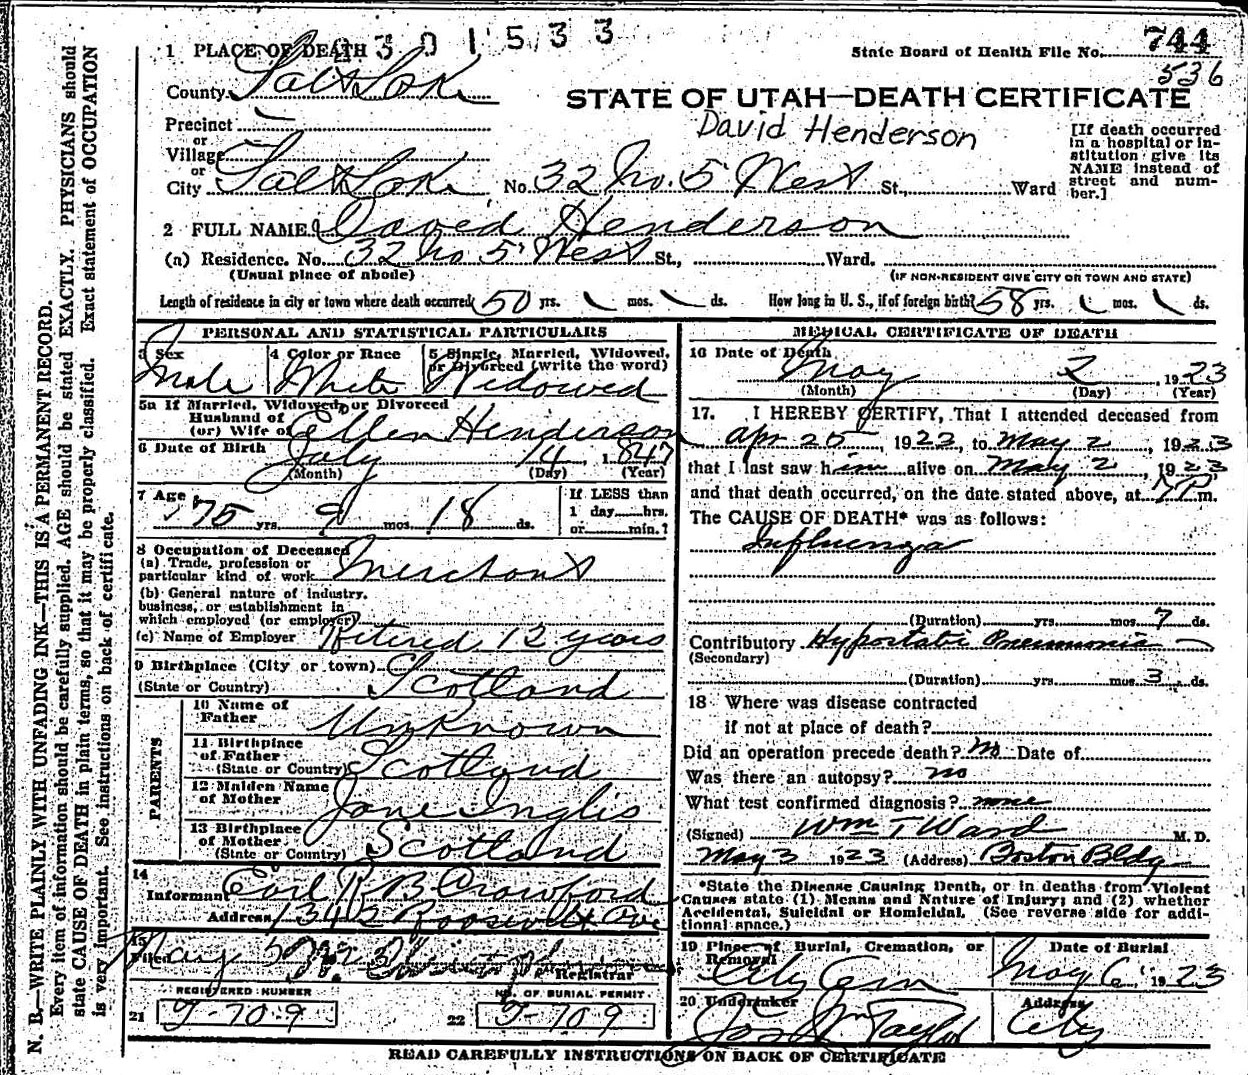 2301533
1 PLACE OF DEATH
State Board of Health File No. 744
536
County Salt Lake
STATE OF UTAH—DEATH CERTIFICATE
David Henderson
Precinct
or
Village
or
City Salt Lake No. 32 No. 5 West St., Ward
[If death occurred in a hospital or institution give its NAME instead of street and number.]
2 FULL NAME David Henderson
(a) Residence. No. 32 No 5 West St., Ward.
(Usual place of abode) (IF NON-RESIDENT GIVE CITY OR TOWN AND STATE)
Length of residence in city or town where death occurred 50 yrs. mos. ds. How long in U. S., if of foreign birth? 58 yrs. mos. ds.
PERSONAL AND STATISTICAL PARTICULARS
3 Sex Male
4 Color or Race White
5 Single, Married, Widowed, or Divorced (write the word) Widowed
5a If Married, Widowed, or Divorced
Husband of
(or) Wife of Ellen Henderson
6 Date of Birth July 14, 1847
(Month) (Day) (Year)
7 Age 75 yrs. 9 mos. 18 ds.
If LESS than
1 day....hrs.
or....min.?
8 Occupation of Deceased
(a) Trade, profession or
particular kind of work Merchant
(b) General nature of industry,
business, or establishment in
which employed (or employer)
(c) Name of Employer Retired 12 years
9 Birthplace (City or town)
(State or Country) Scotland
PARENTS
10 Name of
Father Unknown
11 Birthplace
of Father
(State or Country) Scotland
12 Maiden Name
of Mother Jane Inglis
13 Birthplace
of Mother
(State or Country) Scotland
14
Informant Earl R B Crawford
Address Roosevelt Ave
15
Filed May 5
Registrar
REGISTERED NUMBER
21 T-709
NO. OF BURIAL PERMIT
22 T-709
MEDICAL CERTIFICATE OF DEATH
16 Date of Death
May 2, 1923
(Month) (Day) (Year)
17. I HEREBY CERTIFY, That I attended deceased from
Apr 25, 1923, to May 2, 1923
that I last saw him alive on May 2, 1923
and that death occurred, on the date stated above, at P.m.
The CAUSE OF DEATH* was as follows:
Influenza
(Duration) yrs. mos. 7 ds.
Contributory Hypostatic Pneumonia
(Secondary)
(Duration) yrs. mos. 3 ds.
18 Where was disease contracted
if not at place of death?
Did an operation precede death? No Date of
Was there an autopsy? no
What test confirmed diagnosis? none
(Signed) Wm T Ward M. D.
May 3 1923 (Address) Boston Bldg
*State the Disease Causing Death, or in deaths from Violent
Causes state (1) Means and Nature of Injury; and (2) whether
Accidental, Suicidal or Homicidal. (See reverse side for additional space.)
19 Place of Burial, Cremation, or
Removal City Cem
Date of Burial
May 6, 1923
20 Undertaker
Jos Wm Taylor
Address
City
READ CAREFULLY INSTRUCTIONS ON BACK OF CERTIFICATE
N. B.—WRITE PLAINLY, WITH UNFADING INK—THIS IS A PERMANENT RECORD.
Every item of information should be carefully supplied. AGE should be stated EXACTLY. PHYSICIANS should
state CAUSE OF DEATH in plain terms, so that it may be properly classified. Exact statement of OCCUPATION
is very important. See instructions on back of certificate.